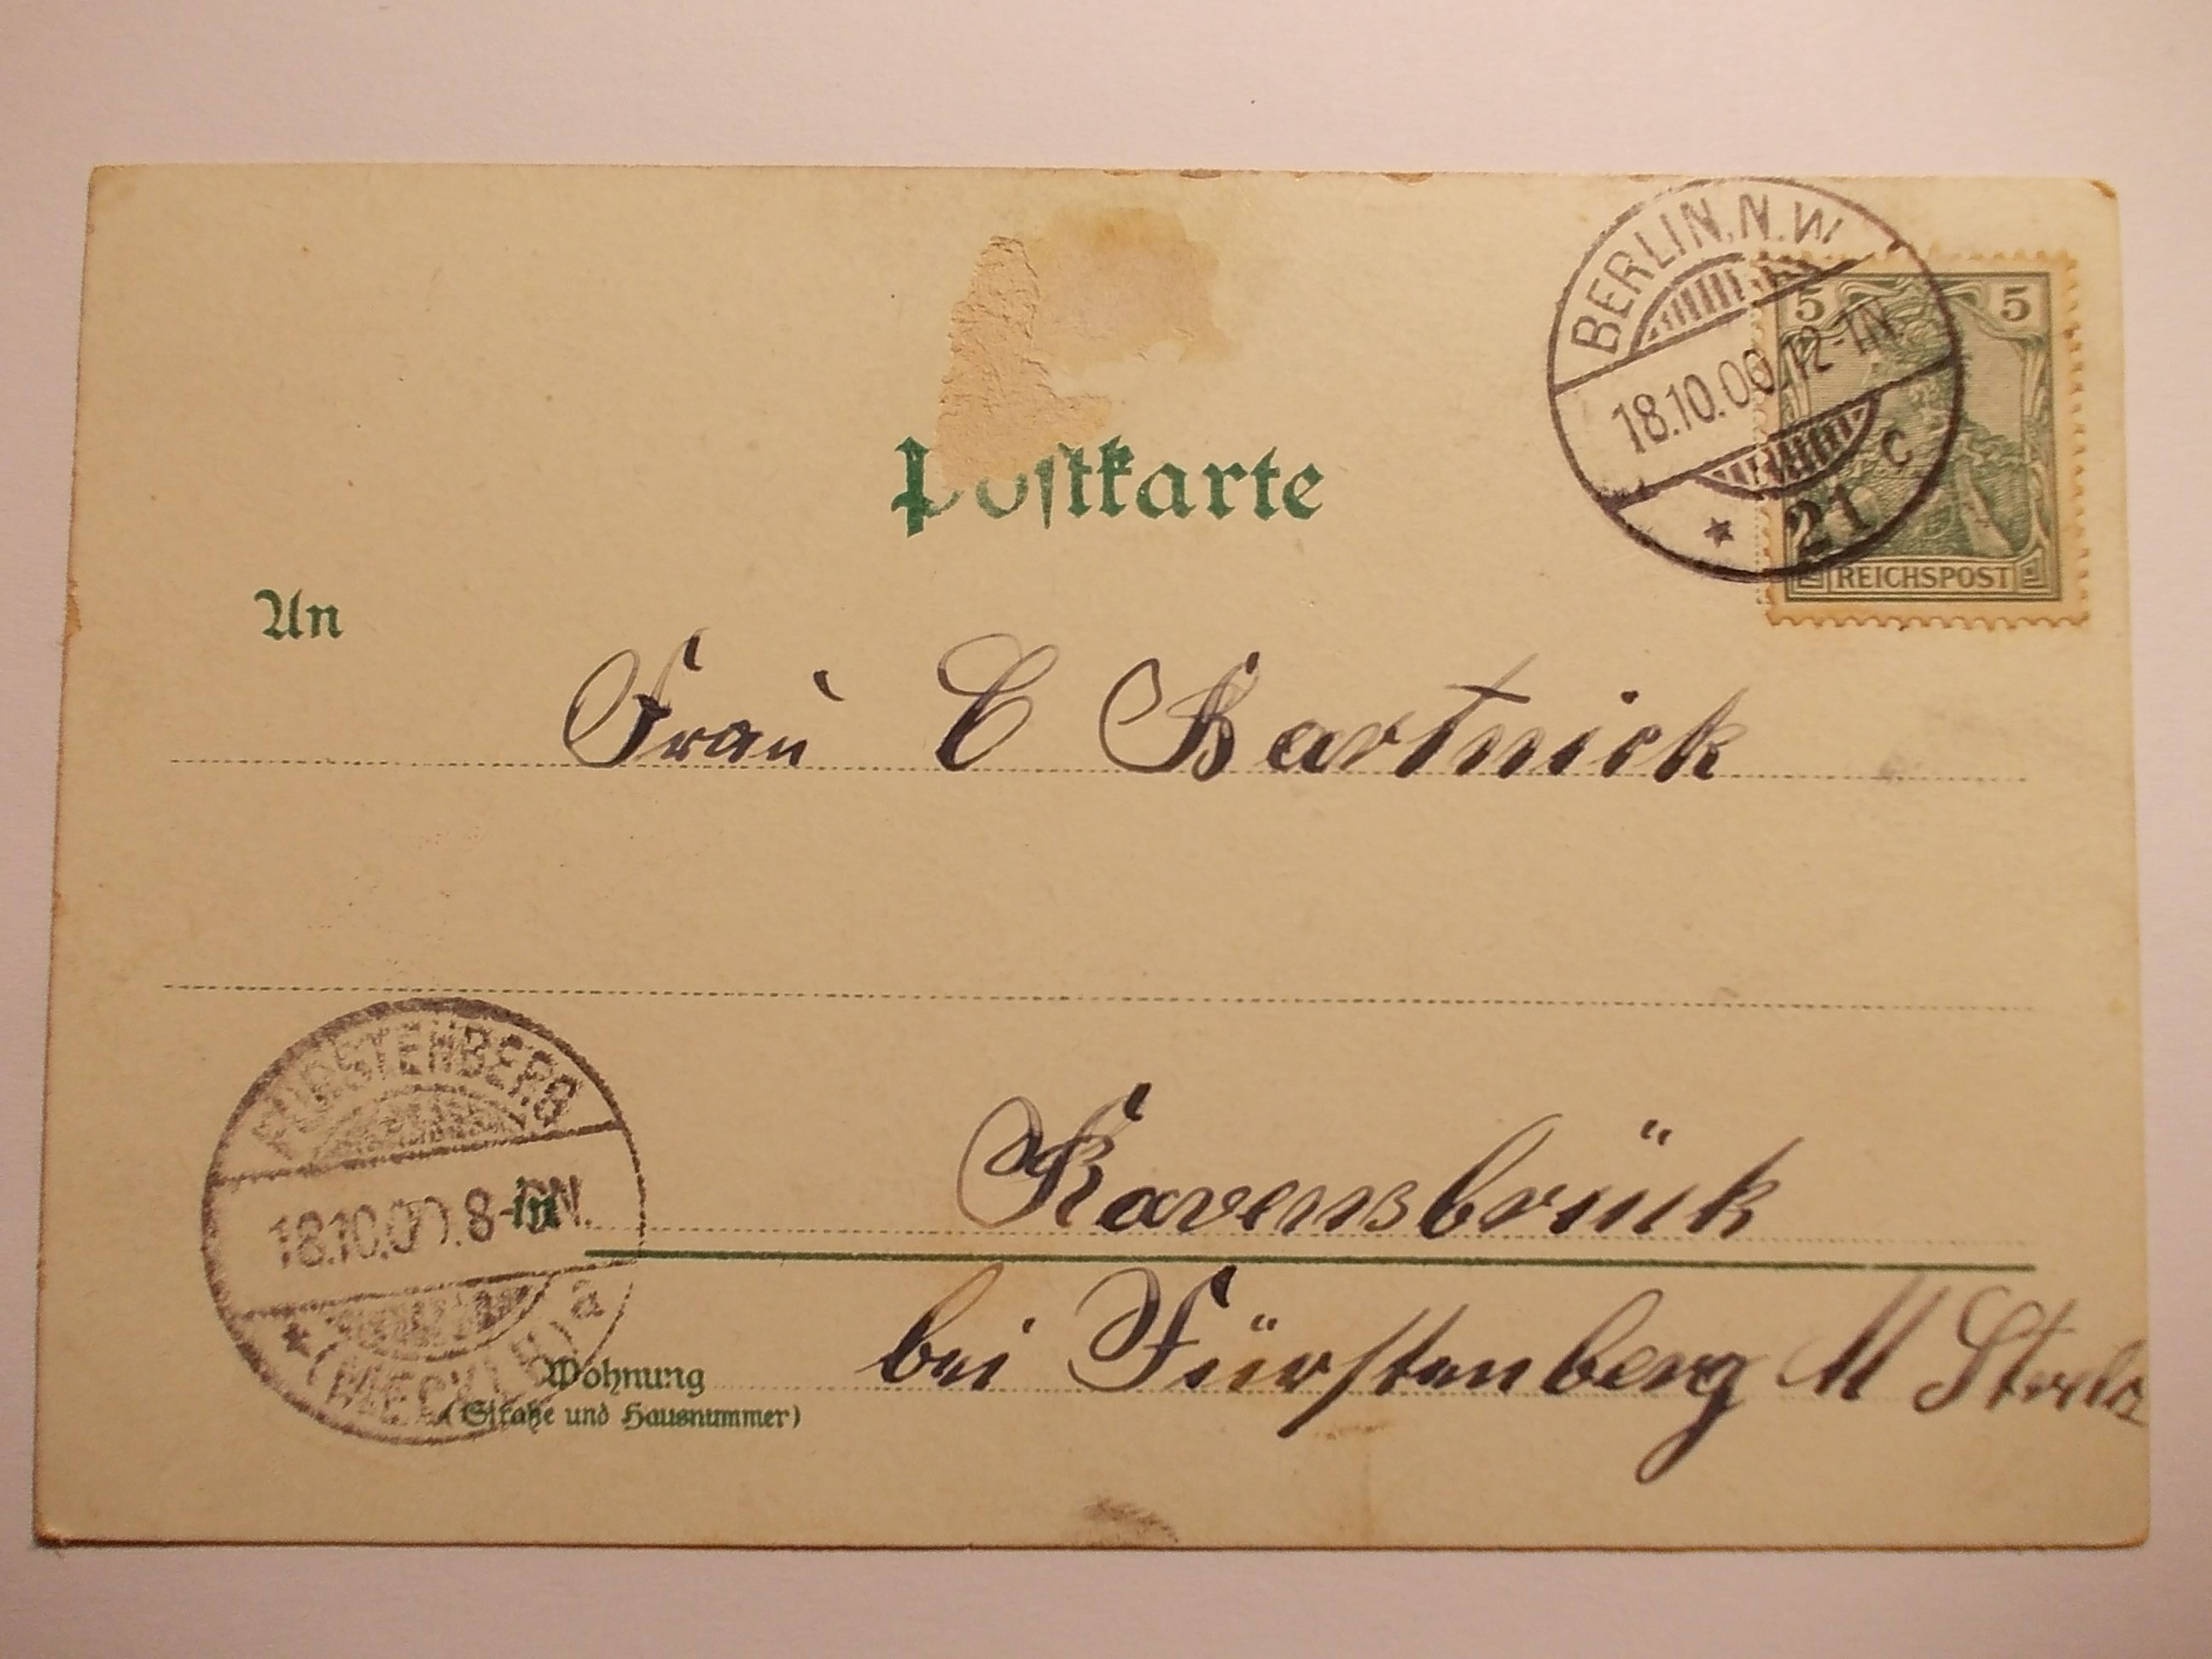 BERLIN, N.W.
18.10.00.12-1N.
* 21 c
5 5
REICHSPOST
Postkarte
An
Frau C Bartnick
FÜRSTENBERG
18.10.00.8-9N.
* (MECKLB) a
in Ravensbrück
bei Fürstenberg M Strelz
Wohnung
(Straße und Hausnummer)